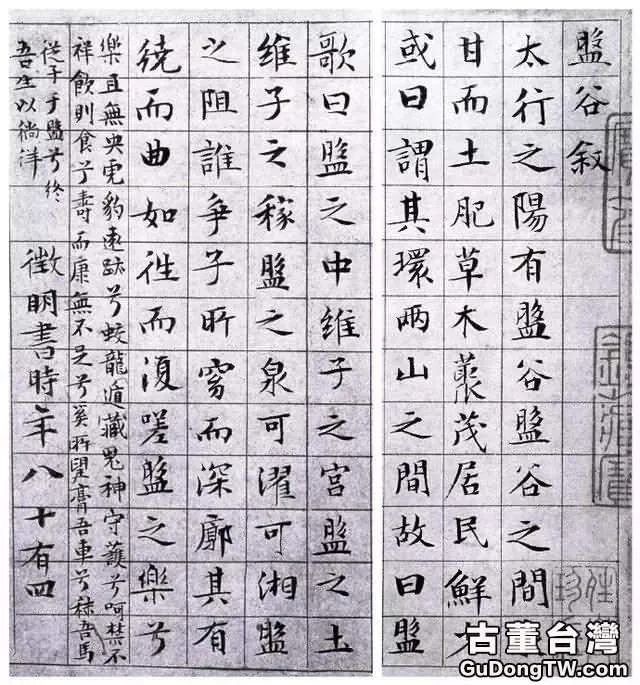 盤谷叙
太行之陽有盤谷盤谷之間
甘而土肥草木藂茂居民鮮
或曰謂其環兩山之間故曰盤
歌曰盤之中維子之宮盤之土
維子之稼盤之泉可濯可湘盤
之阻誰爭子所窈而深廓其有
繞而曲如往而復嗟盤之樂兮
樂且無央虎豹遠跡兮蛟龍遁藏鬼神守護兮呵禁不
祥飲則食兮壽而康無不足兮奚所望膏吾車兮秣吾馬
從子于盤兮終
吾生以徜徉
徵明書時年八十有四
古董台灣
GuDongTW.com